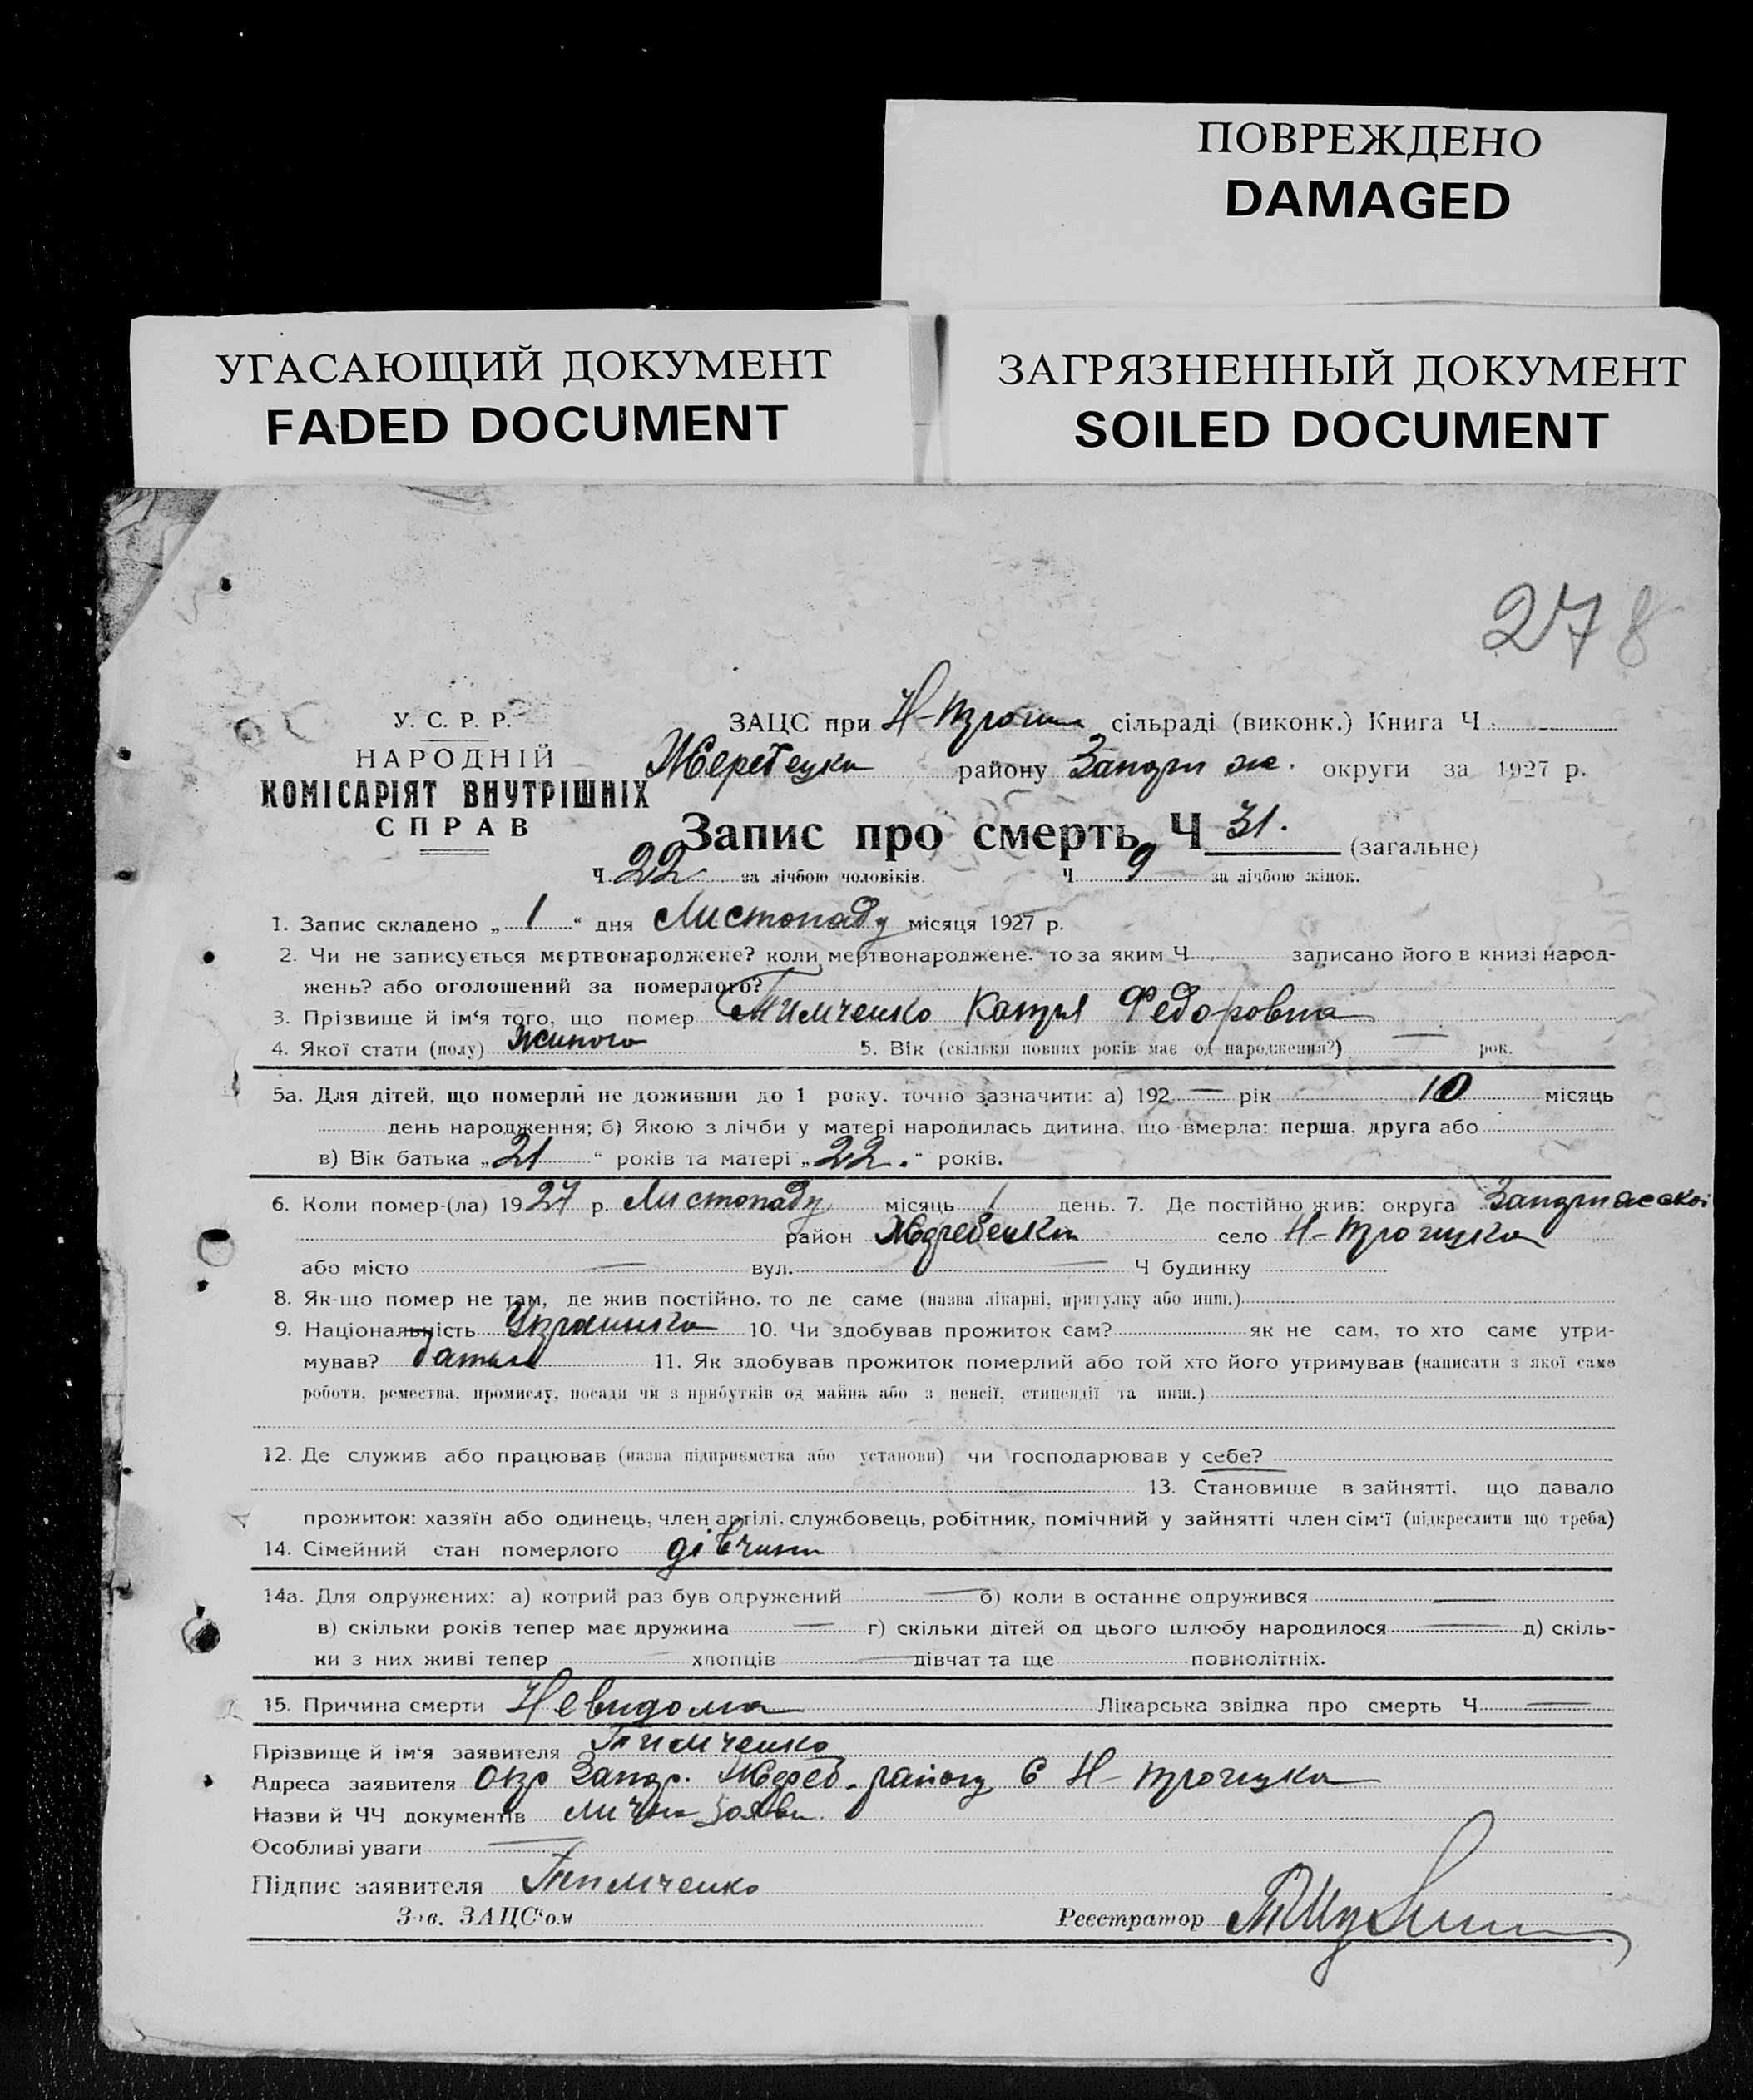 ПОВРЕЖДЕНО
DAMAGED
УГАСАЮЩИЙ ДОКУМЕНТ
FADED DOCUMENT
ЗАГРЯЗНЕННЫЙ ДОКУМЕНТ
SOILED DOCUMENT
278
У. С. Р. Р.
НАРОДНІЙ
КОМІСАРІЯТ ВНУТРІШНІХ
СПРАВ
ЗАЦС при сільраді (виконк.) Книга Ч
району округи за 1927 р.
Запис про смерть Ч 31. (загальне)
Ч 22 за лічбою чоловіків. Ч 9 за лічбою жінок.
1. Запис складено „ 1 “ дня Листопаду місяця 1927 р.
2. Чи не записується мертвонароджене? коли мертвонароджене, то за яким Ч записано його в книзі народ-
жень? або оголошений за померлого?
3. Прізвище й ім‘я того, що помер Тимченко Катря Федоровна
4. Якої стати (полу) Жиного 5. Вік (скільки повних років має од народження?) — рок.
5а. Для дітей, що померли не доживши до 1 року, точно зазначити: а) 192 — рік 10 місяць
день народження; б) Якою з лічби у матері народилась дитина, що вмерла: перша, друга або
в) Вік батька „ 21 “ років та матері „ 22. “ років.
6. Коли помер-(ла) 1927 р. Листопаду місяць 1 день. 7. Де постійно жив: округа
район село
або місто — вул. — Ч будинку
8. Як-що помер не там, де жив постійно, то де саме (назва лікарні, притулку або инш.)
9. Національність 10. Чи здобував прожиток сам? як не сам, то хто саме утри-
мував? батько 11. Як здобував прожиток померлий або той хто його утримував (написати з якої саме
роботи, ремества, промислу, посади чи з прибутків од майна або з пенсії, стипендії та инш.)
12. Де служив або працював (назва підприємства або установи) чи господарював у себе?
13. Становище в зайнятті, що давало
прожиток: хазяїн або одинець, член артілі, службовець, робітник, помічний у зайнятті член сім‘ї (підкреслити що треба)
14. Сімейний стан померлого дівчина
14а. Для одружених: а) котрий раз був одружений — б) коли в останнє одружився —
в) скільки років тепер має дружина — г) скільки дітей од цього шлюбу народилося — д) скіль-
ки з них живі тепер — хлопців — дівчат та ще повнолітніх.
15. Причина смерти Невидома Лікарська звідка про смерть Ч —
Прізвище й ім‘я заявителя Тимченко
Адреса заявителя Окр Запор. Жереб. району С Н-
Назви й ЧЧ документів
Особливі уваги —
Підпис заявителя Тимченко
Зав. ЗАЦС‘ом Реєстратор